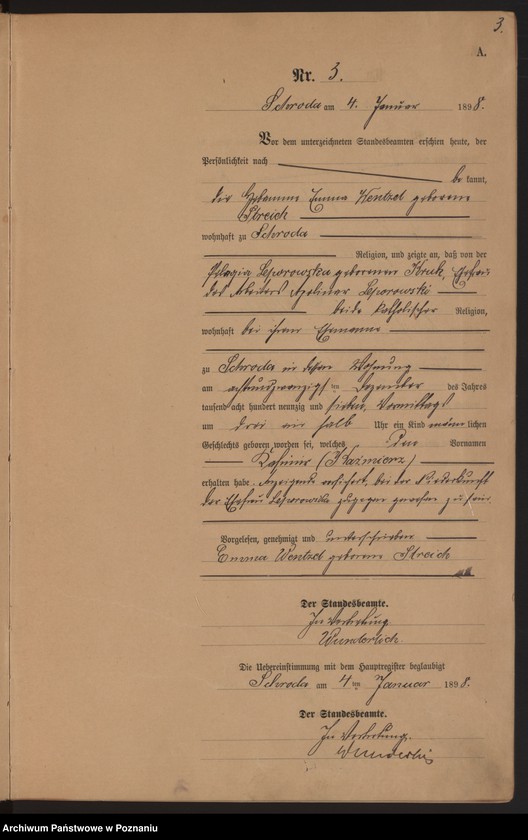 3.
A.
Nr. 3.
Schroda am 4. Januar 1898.
Vor dem unterzeichneten Standesbeamten erschien heute, der
Persönlichkeit nach
be kannt,
die Hebamme Emma Wentzel geborene
Streich
wohnhaft zu Schroda
Religion, und zeigte an, daß von der
Pelagia Leporowska geborenen Kruk, Ehefrau
des Arbeiters Apolinar Leporowski
beide katholischer Religion,
wohnhaft bei ihrem Ehemanne
zu Schroda in deren Wohnung
am achtundzwanzigsten Dezember des Jahres
tausend acht hundert neunzig und sieben, Vormittags
um drei ein halb Uhr ein Kind männlichen
Geschlechts geboren worden sei, welches den Vornamen
Kasimir (Kazimierz)
erhalten habe. Anzeigende versichert, bei der Niederkunft
der Ehefrau Leporowska zugegen gewesen zu sein
Vorgelesen, genehmigt und unterschrieben
Emma Wentzel geborene Streich
Der Standesbeamte.
In Vertretung.
Wunderlich
Die Uebereinstimmung mit dem Hauptregister beglaubigt
Schroda am 4ten Januar 1898.
Der Standesbeamte.
In Vertretung.
Wunderlich
Archiwum Państwowe w Poznaniu